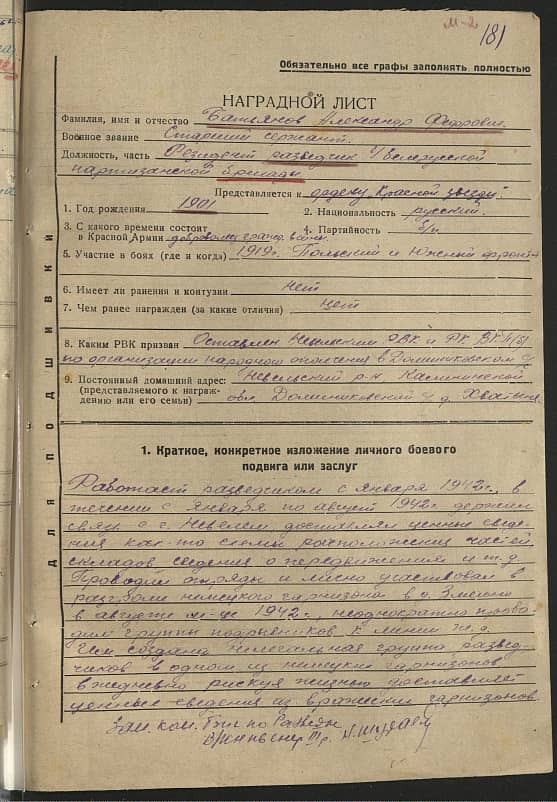 м-2
181
Обязательно все графы заполнять полностью
НАГРАДНОЙ ЛИСТ
Фамилия, имя и отчество Батьянов Александр
Военное звание Старший сержант.
Должность, часть Резидент разведчик 4 Белорусской
партизанской бригады
Представляется к ордену Красной звезды.
1. Год рождения 1901
2. Национальность русский.
3. С какого времени состоит
в Красной Армии доброволец гражд. войны.
4. Партийность б/п
5. Участие в боях (где и когда) 1919г. Польский и Южный фронт
6. Имеет ли ранения и контузии Нет
7. Чем ранее награжден (за какие отличия) Нет
8. Каким РВК призван Оставлен Невельским РВК и РК ВКП(б)
по организации народного ополчения в Доминиковском
9. Постоянный домашний адрес: Невельский р-н Калининской
(представляемого к награж-
дению или его семьи) обл. Доминиковский
Для подшивки
1. Краткое, конкретное изложение личного боевого
подвига или заслуг
Работает разведчиком с января 1942г., в
течении с января по август 1942г. держал
связь с г. Невелем доставлял ценные сведе-
ния как-то схемы расположения частей
складов сведения о передвижениях и т.д.
Проводил отряды и лично участвовал в
разгроме немецкого гарнизона в д.
в августе м-це 1942г., неоднократно прово-
дил группы подрывников к линии ж.д.
Им создана нелегальная группа развед-
чиков в одном из немецких гарнизонов
ежедневно рискуя жизнью доставляет
ценные сведения из вражеских гарнизонов.
Зам. ком. по